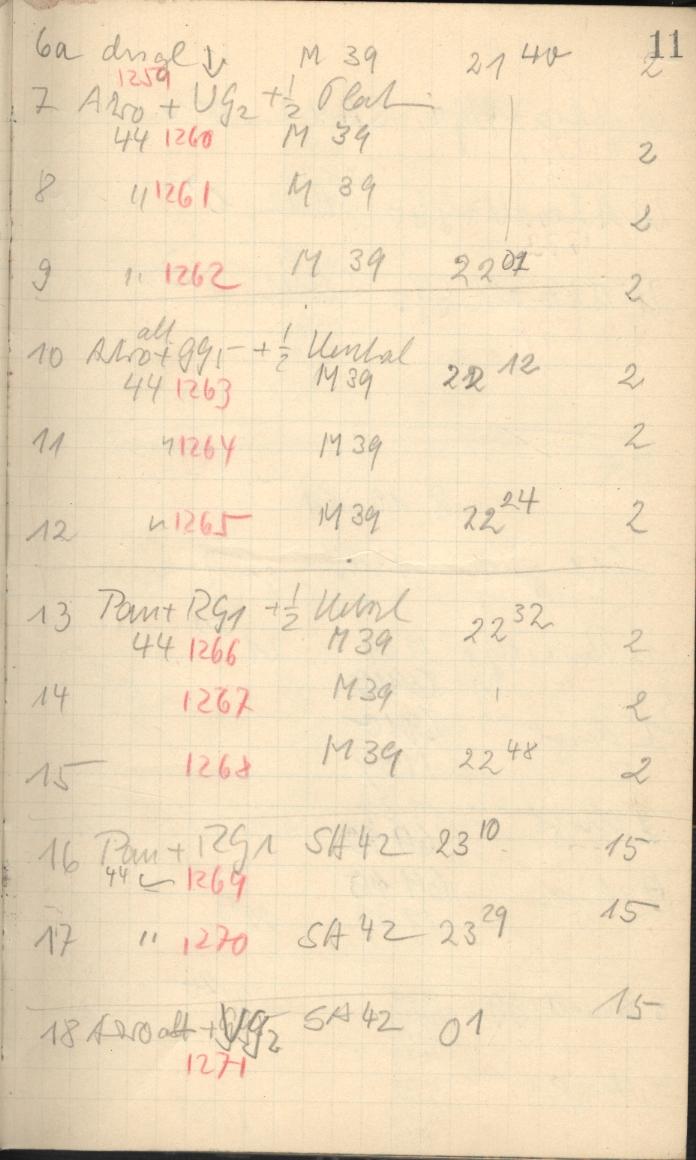 11
6a M 39 21 40 2
1259
7 + UG2 + 1/2
44 1260 M 39 2
8 " 1261 M 39 2
9 " 1262 M 39 22 01 2
alt
10 Agro + GG5 + 1/2 22 12
44 1263 M 39 2
11 " 1264 M 39 2
12 " 1265 M 39 22 24 2
13 Pan + RG1 + 1/2 22 32
44 1266 M 39 2
14 1267 M 39 2
15 1268 M 39 22 48 2
16 Pan + RG1 SA 42 23 10 15
44 1269
17 " 1270 SA 42 23 29 15
18 alt + UG2 SA 42 01 15
1271